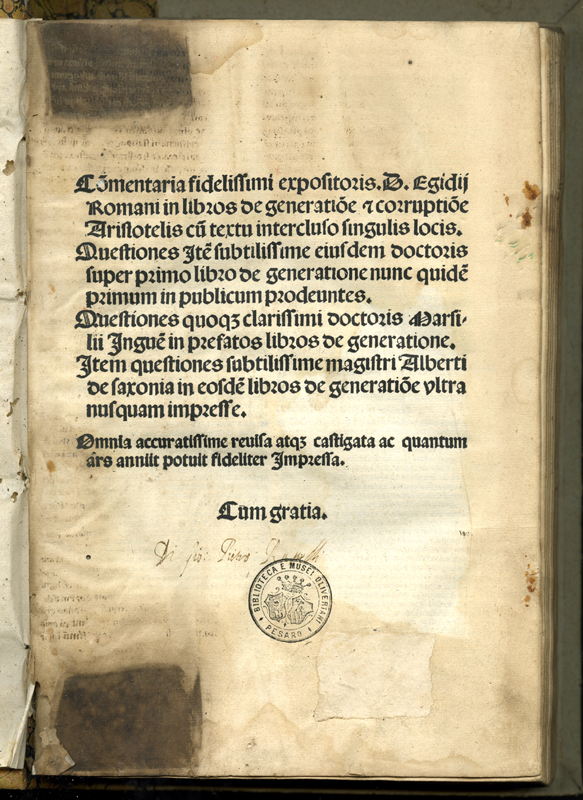 Cōmentaria fidelissimi expositoris.D. Egidij
Romani in libros de generatiōe ⁊ corruptiōe
Aristotelis cū textu intercluso singulis locis.
Questiones Itē subtilissime eiusdem doctoris
super primo libro de generatione nunc quidē
primum in publicum prodeuntes.
Questiones quoqꝫ clarissimi doctoris Marsi-
lii Inguē in prefatos libros de generatione.
Item questiones subtilissime magistri Alberti
de saxonia in eosdē libros de generatiōe vltra
nusquam impresse.
Omnia accuratissime reuisa atqꝫ castigata ac quantum
ars anniti potuit fideliter Impressa.
Cum gratia.
Di Pietro
BIBLIOTECA E MUSEI OLIVERIANI
PESARO